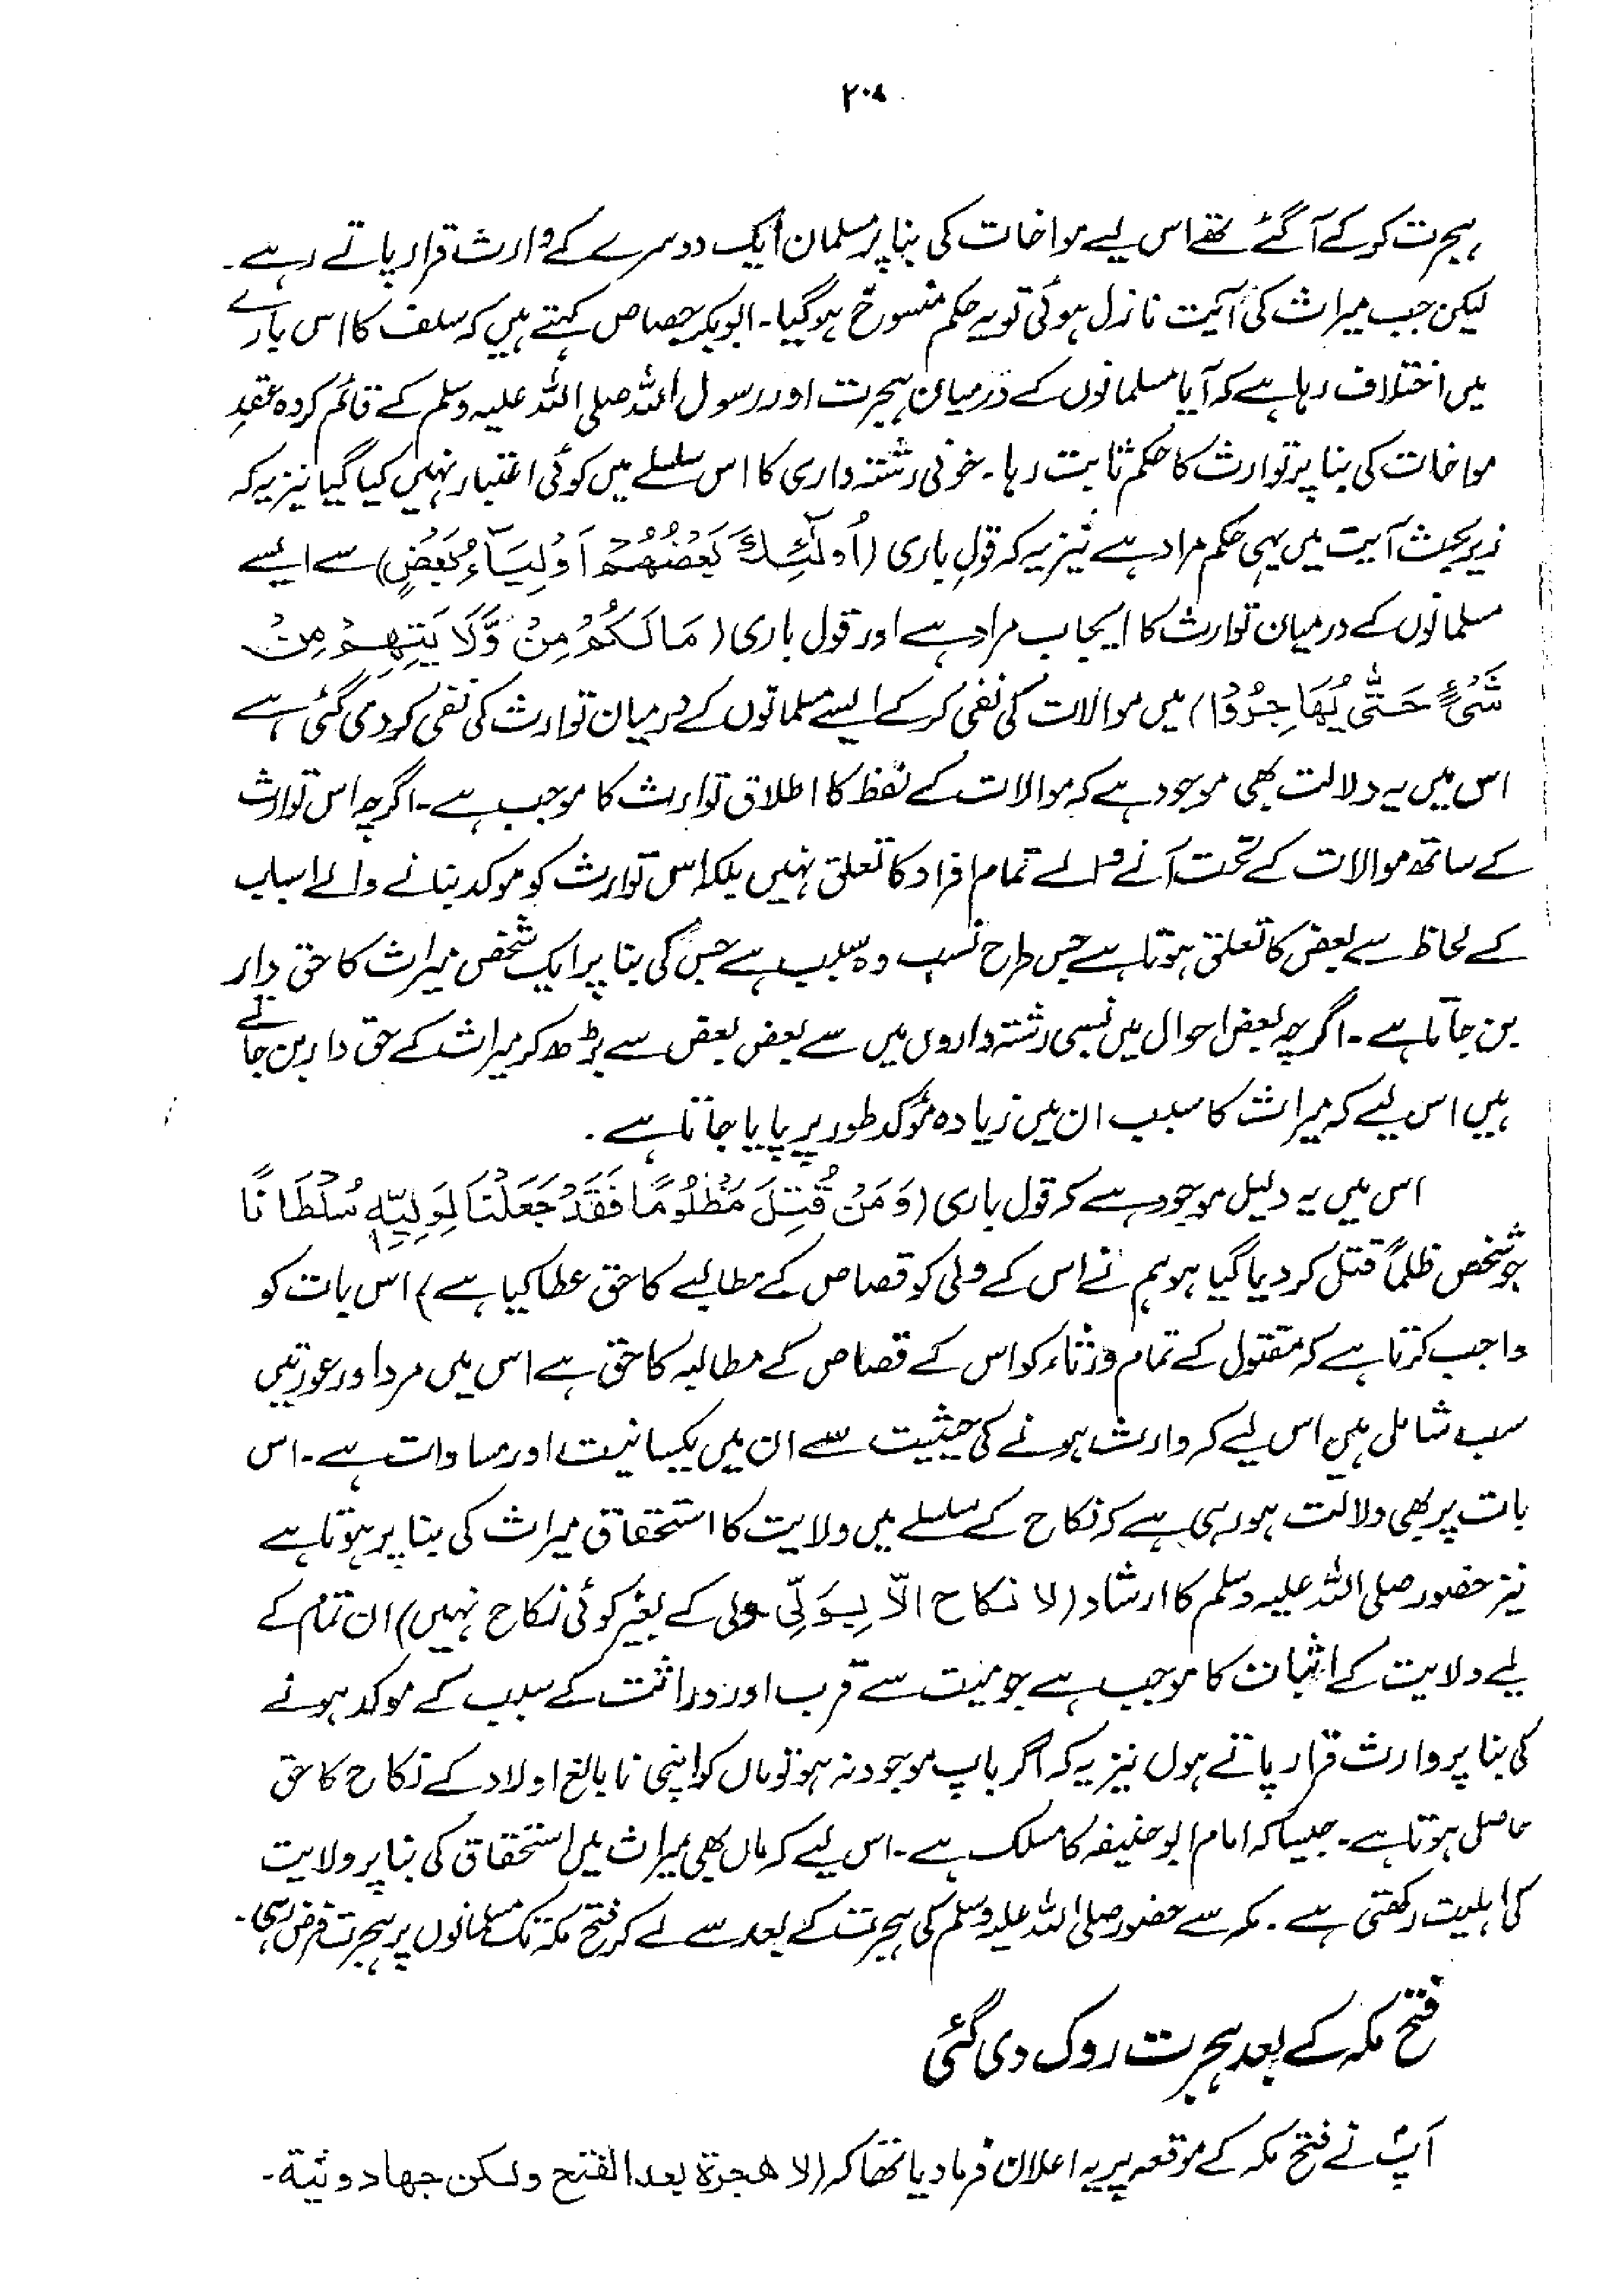 ۲۰۸
ہجرت کر کے آ گئے تھے اس لیے مواخات کی بنا پر مسلمان ایک دوسرے کے وارث قرار پاتے رہے۔
لیکن جب میراث کی آیت نازل ہوئی تو یہ حکم منسوخ ہو گیا۔ ابوبکر جصاص کہتے ہیں کہ سلف کا اس بارے
میں اختلاف رہا ہے کہ آیا مسلمانوں کے درمیان ہجرت اور رسول اللہ صلی اللہ علیہ وسلم کے قائم کردہ عقدِ
مواخات کی بنا پر توارث کا حکم ثابت رہا۔ خونی رشتہ داری کا اس سلسلے میں کوئی اعتبار نہیں کیا گیا نیز یہ کہ
زیر بحث آیت میں یہی حکم مراد ہے نیز یہ کہ قول باری (اُولٰٓئِكَ بَعْضُهُمْ اَوْلِيَآءُ بَعْضٍ) سے ایسے
مسلمانوں کے درمیان توارث کا ایجاب مراد ہے اور قول باری (مَا لَكُمْ مِنْ وَّلَا يَتِهِمْ مِنْ
شَيْءٍ حَتّٰى يُهَاجِرُوْا) میں موالات کی نفی کر کے ایسے مسلمانوں کے درمیان توارث کی نفی کر دی گئی ہے
اس میں یہ دلالت بھی موجود ہے کہ موالات کے لفظ کا اطلاق توارث کا موجب ہے۔ اگرچہ اس توارث
کے ساتھ موالات کے تحت آنے والے تمام افراد کا تعلق نہیں بلکہ اس توارث کو موکد بنانے والے اسباب
کے لحاظ سے بعض کا تعلق ہوتا ہے جس طرح نسب وہ سبب ہے جس کی بنا پر ایک شخص میراث کا حق دار
بن جاتا ہے۔ اگرچہ بعض احوال میں نسبی رشتہ داروں میں سے بعض بعض سے بڑھ کر میراث کے حق دار بن جاتے
ہیں اس لیے کہ میراث کا سبب ان میں زیادہ مؤکد طور پر پایا جاتا ہے۔
اس میں یہ دلیل موجود ہے کہ قول باری (وَمَنْ قُتِلَ مَظْلُوْمًا فَقَدْ جَعَلْنَا لِوَلِيِّهٖ سُلْطَانًا
جو شخص ظلماً قتل کر دیا گیا ہو ہم نے اس کے ولی کو قصاص کے مطالبے کا حق عطا کیا ہے) اس بات کو
واجب کرتا ہے کہ مقتول کے تمام ورثاء کو اس کے قصاص کے مطالبہ کا حق ہے اس میں مرد اور عورتیں
سب شامل ہیں اس لیے کہ وارث ہونے کی حیثیت سے ان میں یکسانیت اور مساوات ہے۔ اس
بات پر بھی دلالت ہو رہی ہے کہ نکاح کے سلسلے میں ولایت کا استحقاق میراث کی بنا پر ہوتا ہے
نیز حضور صلی اللہ علیہ وسلم کا ارشاد (لا نكاح الّا بِوَلِّى ولی کے بغیر کوئی نکاح نہیں) ان تمام کے
لیے ولایت کے اثبات کا موجب ہے جو میت سے قرب اور وراثت کے سبب کے موکد ہونے
کی بنا پر وارث قرار پاتے ہوں نیز یہ کہ اگر باپ موجود نہ ہو تو ماں کو اپنی نابالغ اولاد کے نکاح کا حق
حاصل ہوتا ہے۔ جیسا کہ امام ابو حنیفہ کا مسلک ہے۔ اس لیے کہ ماں بھی میراث میں استحقاق کی بنا پر ولایت
کی اہلیت رکھتی ہے۔ مکہ سے حضور صلی اللہ علیہ وسلم کی ہجرت کے بعد سے لے کر فتح مکہ تک مسلمانوں پر ہجرت فرض رہی۔
فتح مکہ کے بعد ہجرت روک دی گئی
آپؐ نے فتح مکہ کے موقعہ پر یہ اعلان فرما دیا تھا کہ (لا هجرة بعد الفتح ولكن جهاد ونية۔